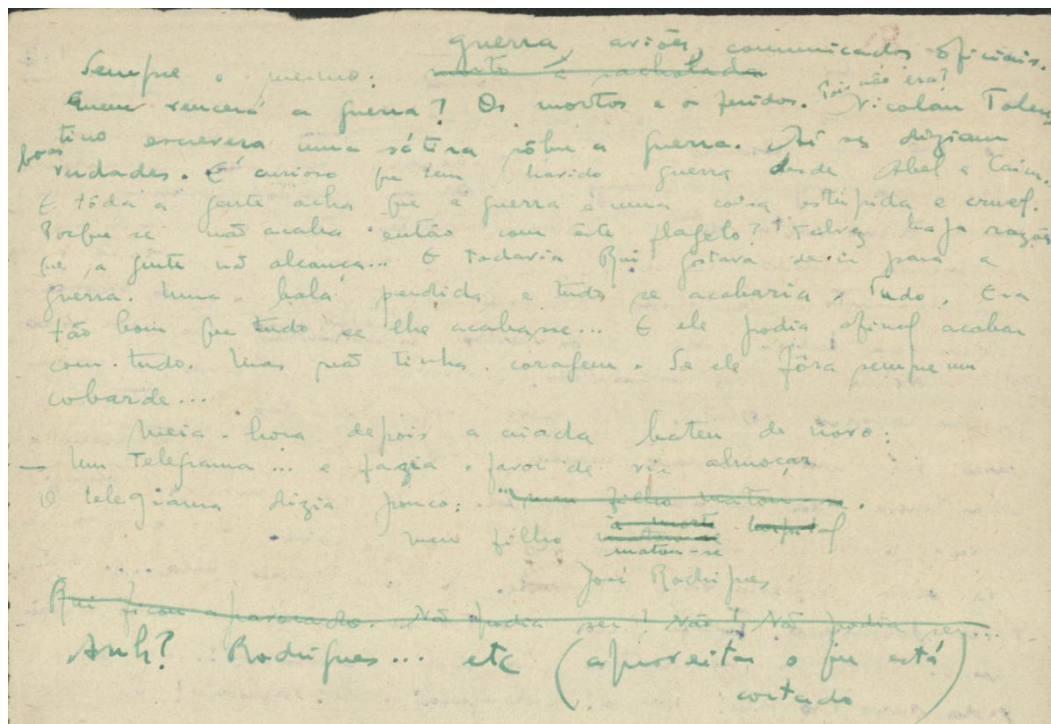 Sempre o mesmo: morto à sacholada guerra, aviões, communicados oficiais.
Quem vencerá a guerra? Os mortos e os feridos. Pois não era? Nicolau Tolen-
tino escrevera uma sátira sôbre a guerra. Aí se diziam boas
verdades. É curioso que tem havido guerra desde Abel e Caim.
E tôda a gente acha que a guerra é uma coisa estúpida e cruel.
Porque se não acaba então com êste flagelo? Talvez haja razões
que a gente não alcança... E todavia Rui gostava de ir para a
guerra. Uma bala perdida e tudo se acabaria. Tudo. Era
tão bom que tudo se lhe acabasse... E ele podia afinal acabar
com tudo. Mas não tinha coragem. Se ele fôra sempre um
cobarde...
Meia-hora depois a criada bateu de novo:
— Um telegrama... e fazia favor de vir almoçar
O telegrama dizia pouco: "meu filho matou
meu filho matou-se
José Rodrigues
Rui ficou apavorado. Não podia ser! Não! Não podia ser...
Anh? Rodrigues... etc (aproveitar o que está
cortado)